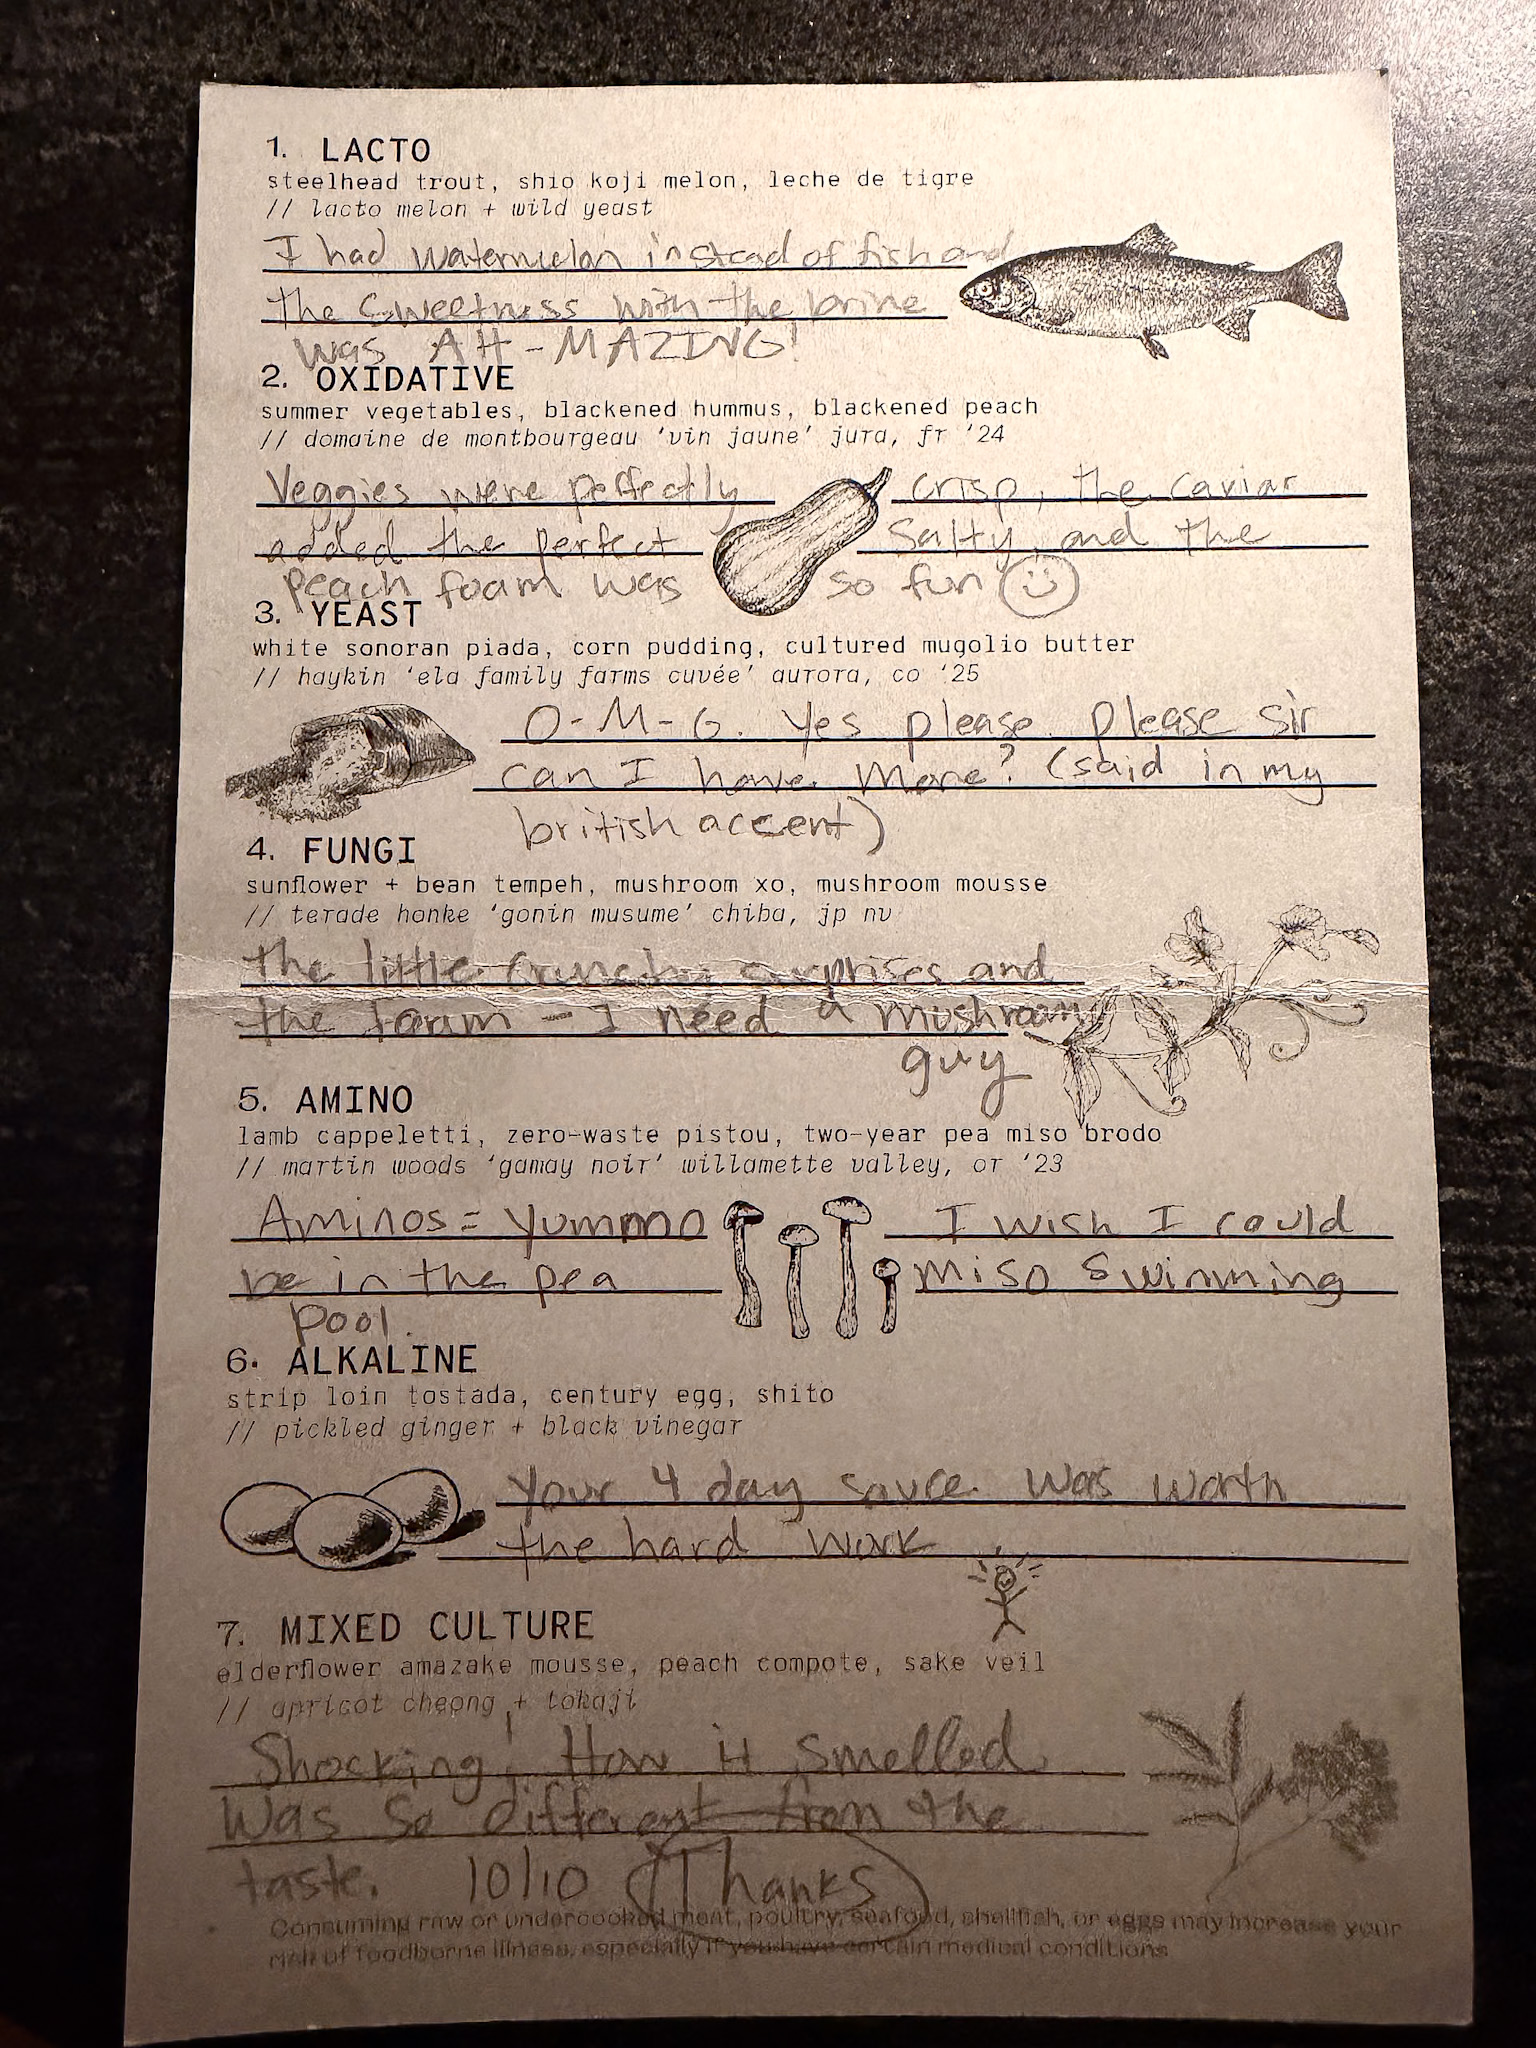 1. LACTO
steelhead trout, shio koji melon, leche de tigre
// lacto melon + wild yeast
I had watermelon instead of fish and
the sweetness with the brine
was AH-MAZING!
2. OXIDATIVE
summer vegetables, blackened hummus, blackened peach
// domaine de montbourgeau ‘vin jaune’ jura, fr ‘24
Veggies were perfectly crisp, the caviar
added the perfect salty, and the
peach foam was so fun
3. YEAST
white sonoran piada, corn pudding, cultured mugolio butter
// haykin ‘ela family farms cuvée’ aurora, co ‘25
O-M-G. Yes please. Please sir
can I have more? (said in my
british accent)
4. FUNGI
sunflower + bean tempeh, mushroom xo, mushroom mousse
// terade honke ‘gonin musume’ chiba, jp nv
the little crunchy surprises and
the foam - I need a mushroom
guy
5. AMINO
lamb cappeletti, zero-waste pistou, two-year pea miso brodo
// martin woods ‘gamay noir’ willamette valley, or ‘23
Aminos = Yummo I wish I could
be in the pea miso swimming
pool.
6. ALKALINE
strip loin tostada, century egg, shito
// pickled ginger + black vinegar
Your 4 day sauce was worth
the hard work
7. MIXED CULTURE
elderflower amazake mousse, peach compote, sake veil
// apricot cheong + tokaji
Shocking! How it smelled
was so different from the
taste. 10/10 Thanks
Consuming raw or undercooked meat, poultry, seafood, shellfish, or eggs may increase your
risk of foodborne illness, especially if you have certain medical conditions